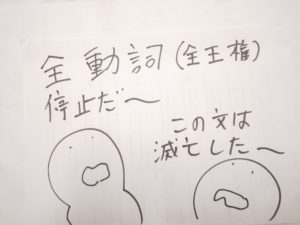 全動詞(全王権)
停止だ〜
この文は
滅亡した〜